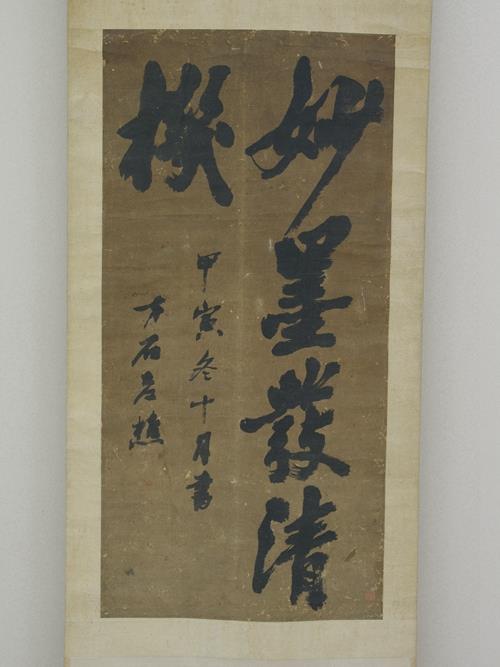 妙墨發清
機
甲寅冬十月書
方石老樵